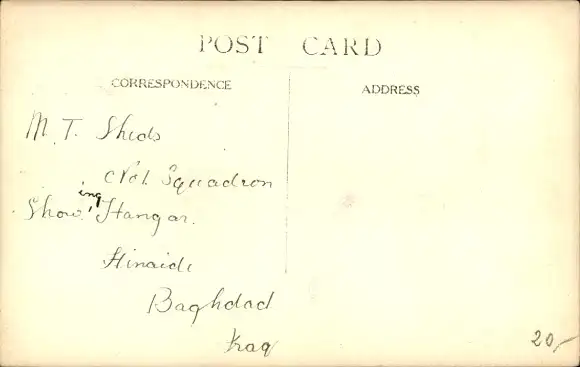 POST CARD
CORRESPONDENCE
ADDRESS
M.T. Sheds
No1 Squadron
Showing Hangar.
Hinaidi
Baghdad
Iraq
20/-